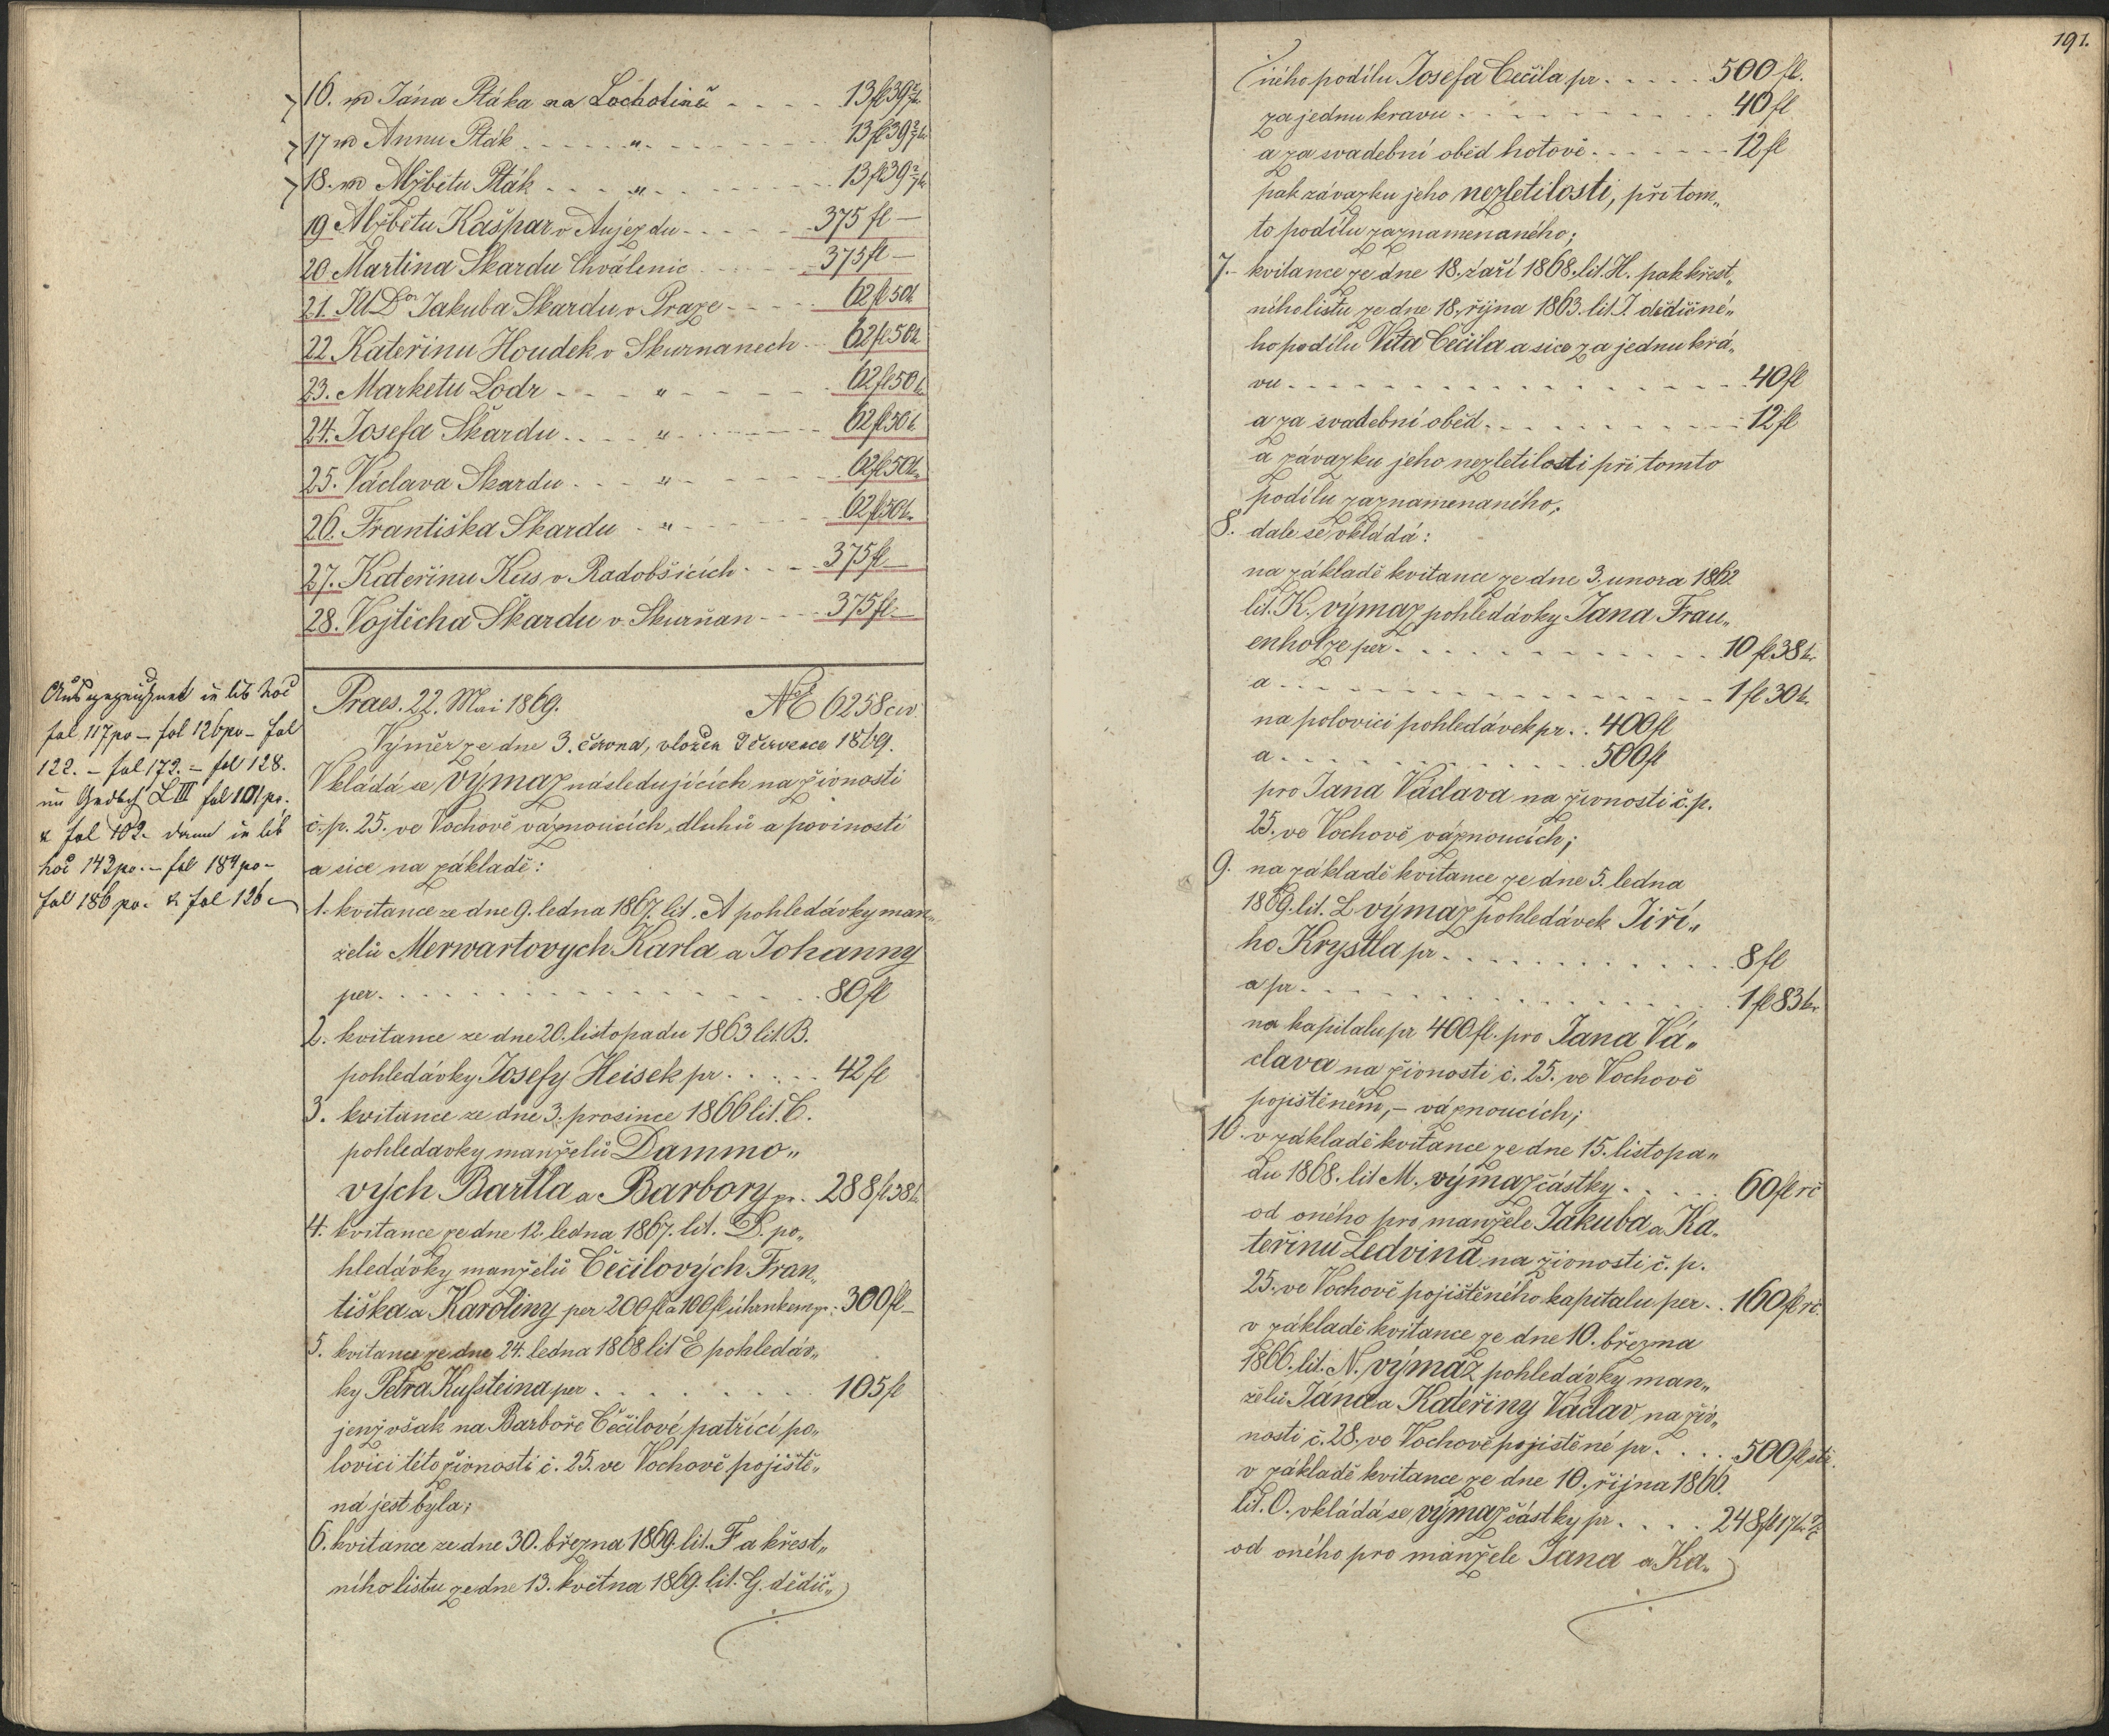 16. md Jána Ptáka na Lochotině - - - - 13 fl 39 2/7 kr
17 md Annu Pták - - - - " - - - - - 13 fl 39 2/7 kr
18. md Alžbětu Pták - - - - " - - - - 13 fl 39 2/7 kr
19 Alžbětu Kašpar v Aujezdu - - - - - 375 fl —
20 Martina Skardu Chválenic - - - - - 375 fl —
21. JUDor Jakuba Skardu v Praze - - - - 62 fl 50 k
22 Kateřinu Houdek v Skurnanech - - 62 fl 50 k
23. Marketu Lodr - - - " - - - - 62 fl 50 k
24. Josefa Škardu - - - " - - - - 62 fl 50 k
25. Václava Skardu - - - " - - - - 62 fl 50 k
26. Františka Skardu - " - - - - - 62 fl 50 k
27. Kateřinu Kus v Radobšicích - - - - 375 fl —
28. Vojtěcha Škardu v Skurňan - - - 375 fl —
Ausgezeichnet in lib hoc
fol 117 po – fol 126 po – fol
122. – fol 172. – fol 128.
im Gndbch L III fol 101 po.
& fol 102 – dann in lib
hoc 142 po. – fol 184 po –
fol 186 po. & fol 126
Praes. 22. Mai 1869. № 6258 civ
Výměr ze dne 3. června, vložen 9 července 1869.
Vkládá se výmaz následujících na živnosti
č. p. 25. ve Vochově váznoucích dluhů a povinosti
a sice na základě:
1. kvitance ze dne 9. ledna 1867. lit. A pohledávky man„
želů Merwartovych Karla a Johanny
per - - - - - - - - - 80 fl
2. kvitance ze dne 20. listopadu 1863 lit. B.
pohledávky Josefy Heisek pr. - - - - 42 fl
3. kvitance ze dne 3. prosince 1866 lit. C.
pohledavky manželů Dammo„
vých Bartla a Barbory pr. 288 fl 38 k
4. kvitance ze dne 12. ledna 1867. lit. D. po„
hledávky manželů Čečilových Fran„
tiška a Karoliny per 200 fl a 100 fl úhrnkem pr. 300 fl –
5. kvitance ze dne 24. ledna 1868 lit E pohledáv„
ky Petra Kufsteina per - - - - - 105 fl
jenž však na Barboře Čečilové patřící po„
lovici této živnosti č. 25. ve Vochově pojiště„
ná jest byla;
6. kvitance ze dne 30. března 1869. lit. F a křest„
ního listu ze dne 13. května 1869. lit. G. dědič„
191.
ného podílu Josefa Čečila pr. - - - - 500 fl.
za jednu kravu - - - - - - - 40 fl
a za svadební oběd hotově - - - - - 12 fl
pak závazku jeho nezletilosti, při tom„
to podílu zaznamenaného;
7. – kvitance ze dne 18. září 1868. lit. H. pak křest„
ního listu ze dne 18. října 1863. lit. J. dědičné„
ho podílu Víta Čečila a sice za jednu krá„
vu - - - - - - - - - - 40 fl
a za svadební oběd - - - - - - 12 fl
a závazku jeho nezletilosti při tomto
podílu zaznamenaného;
8. dale se vkládá:
na základě kvitance ze dne 3. unora 1862
lit. K. výmaz pohledávky Jana Frau„
enholze per - - - - - - - 10 fl 38 kr
a - - - - - - - - - - 1 fl 30 kr
na polovici pohledávek pr. . 400 fl
a - - - - - - - - 500 fl
pro Jana Václava na živnosti č. p.
25. ve Vochově váznoucích;
9. na základě kvitance ze dne 5. ledna
1869. lit. L výmaz pohledávek Jiří„
ho Krystla pr - - - - - - - 8 fl
a pr - - - - - - - - - 1 fl 83 kr
na kapitalu pr 400 fl. pro Jana Vá„
clava na živnosti č. 25. ve Vochově
pojištěném, – váznoucích;
10. v základě kvitance ze dne 15. listopa„
du 1868. lit M. výmaz částky - - - - 60 fl rč
od oného pro manžele Jakuba a Ka„
teřinu Ledvina na živnosti č. p.
25. ve Vochově pojištěného kapitalu per - . 160 fl rč.
v základě kvitance ze dne 10. března
1866. lit. N. výmaz pohledávky man„
želů Jána a Kateřiny Václav na živ„
nosti č. 28. ve Vochově pojištěné pr. - - - 500 fl stč.
v základě kvitance ze dne 10. října 1866.
lit. O. vkládá se výmaz částky pr - - - - 248 fl 17 kr
od oného pro manžele Jana a Ka„